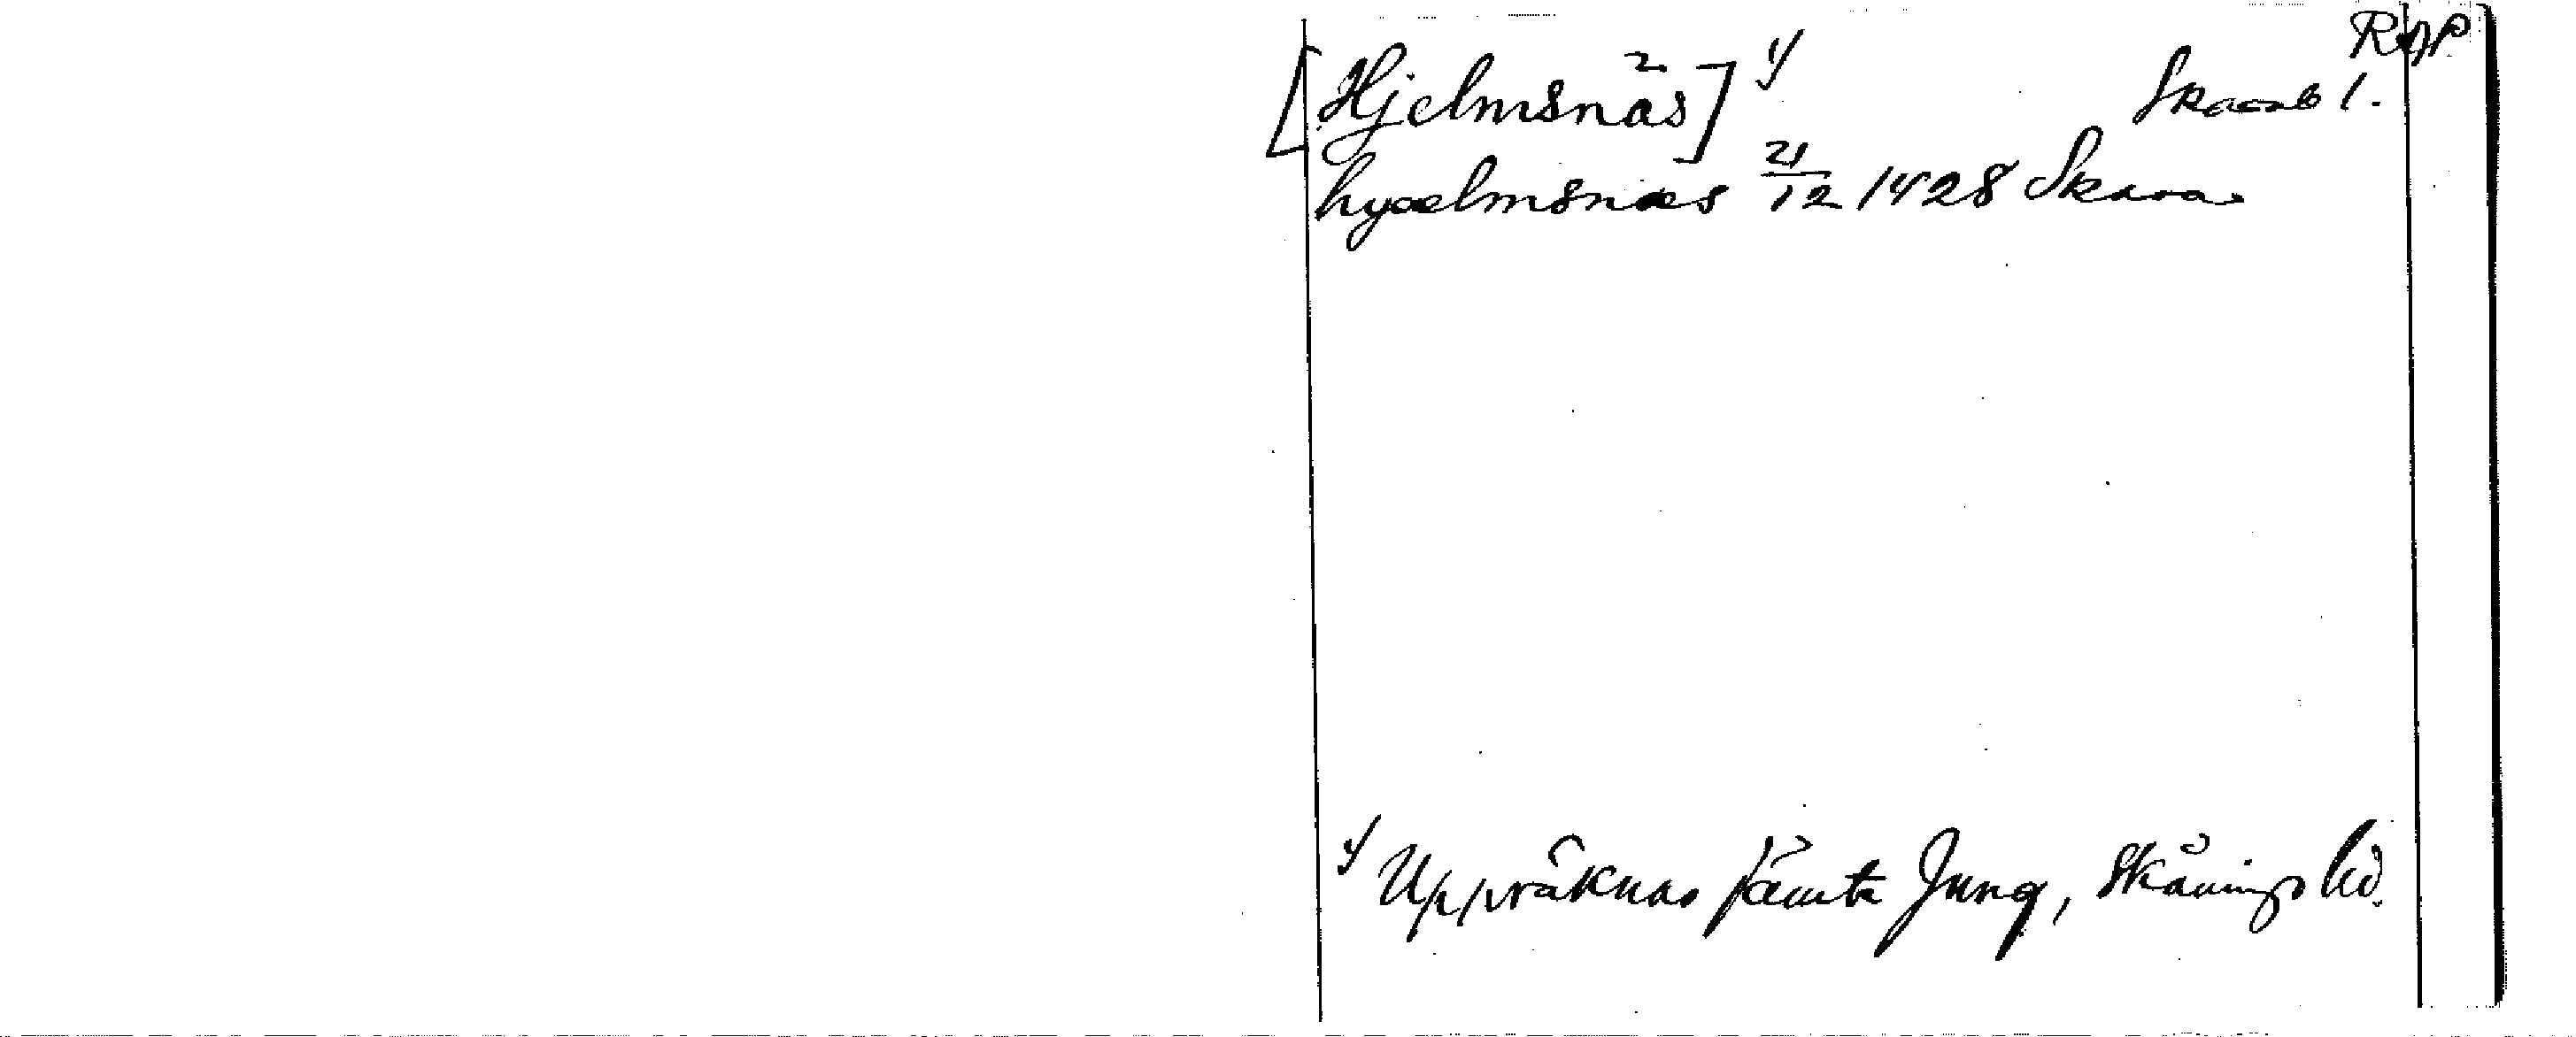 RAP
[Hjelmsnäs] 1) Skarab l.
hyælmsnæs 21/12 1428 Skara
1) Uppräknas jämte Jung, Skånings hd.